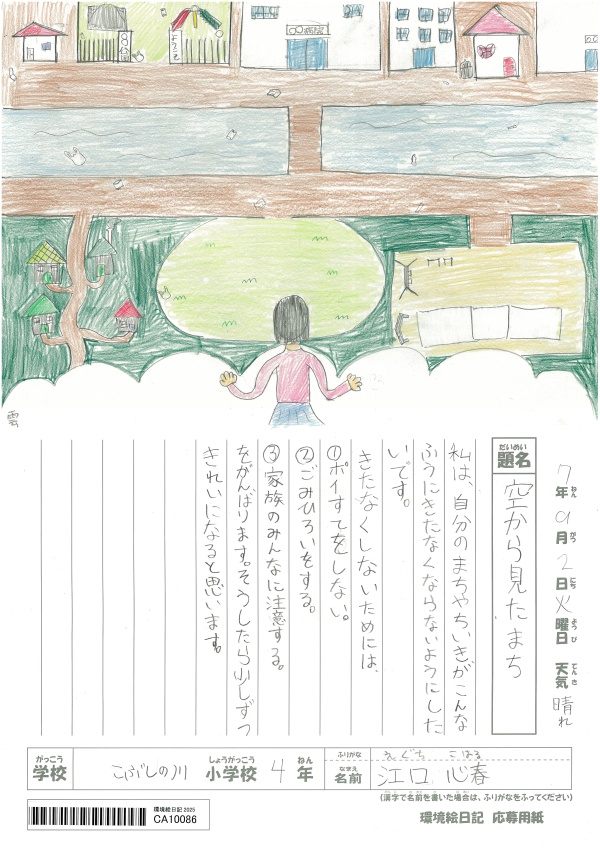 公園
ようこそ
病院
雲
7年9月2日火曜日 天気 晴れ
ねん がつ にち ようび てんき
だいめい
題名
空から見たまち
私は、自分のまちやちいきがこんな
ふうにきたなくならないようにした
いです。
きたなくしないためには、
①ポイすてをしない。
②ごみひろいをする。
③家族のみんなに注意する。
をがんばります。そうしたら少しずつ
きれいになると思います。
がっこう しょうがっこう ねん
学校 こぶしの川 小学校 4年
ふりがな えぐち こはる
なまえ
名前 江口 心春
(漢字で名前を書いた場合は、ふりがなをふってください)
環境絵日記 2025
CA10086
環境絵日記 応募用紙